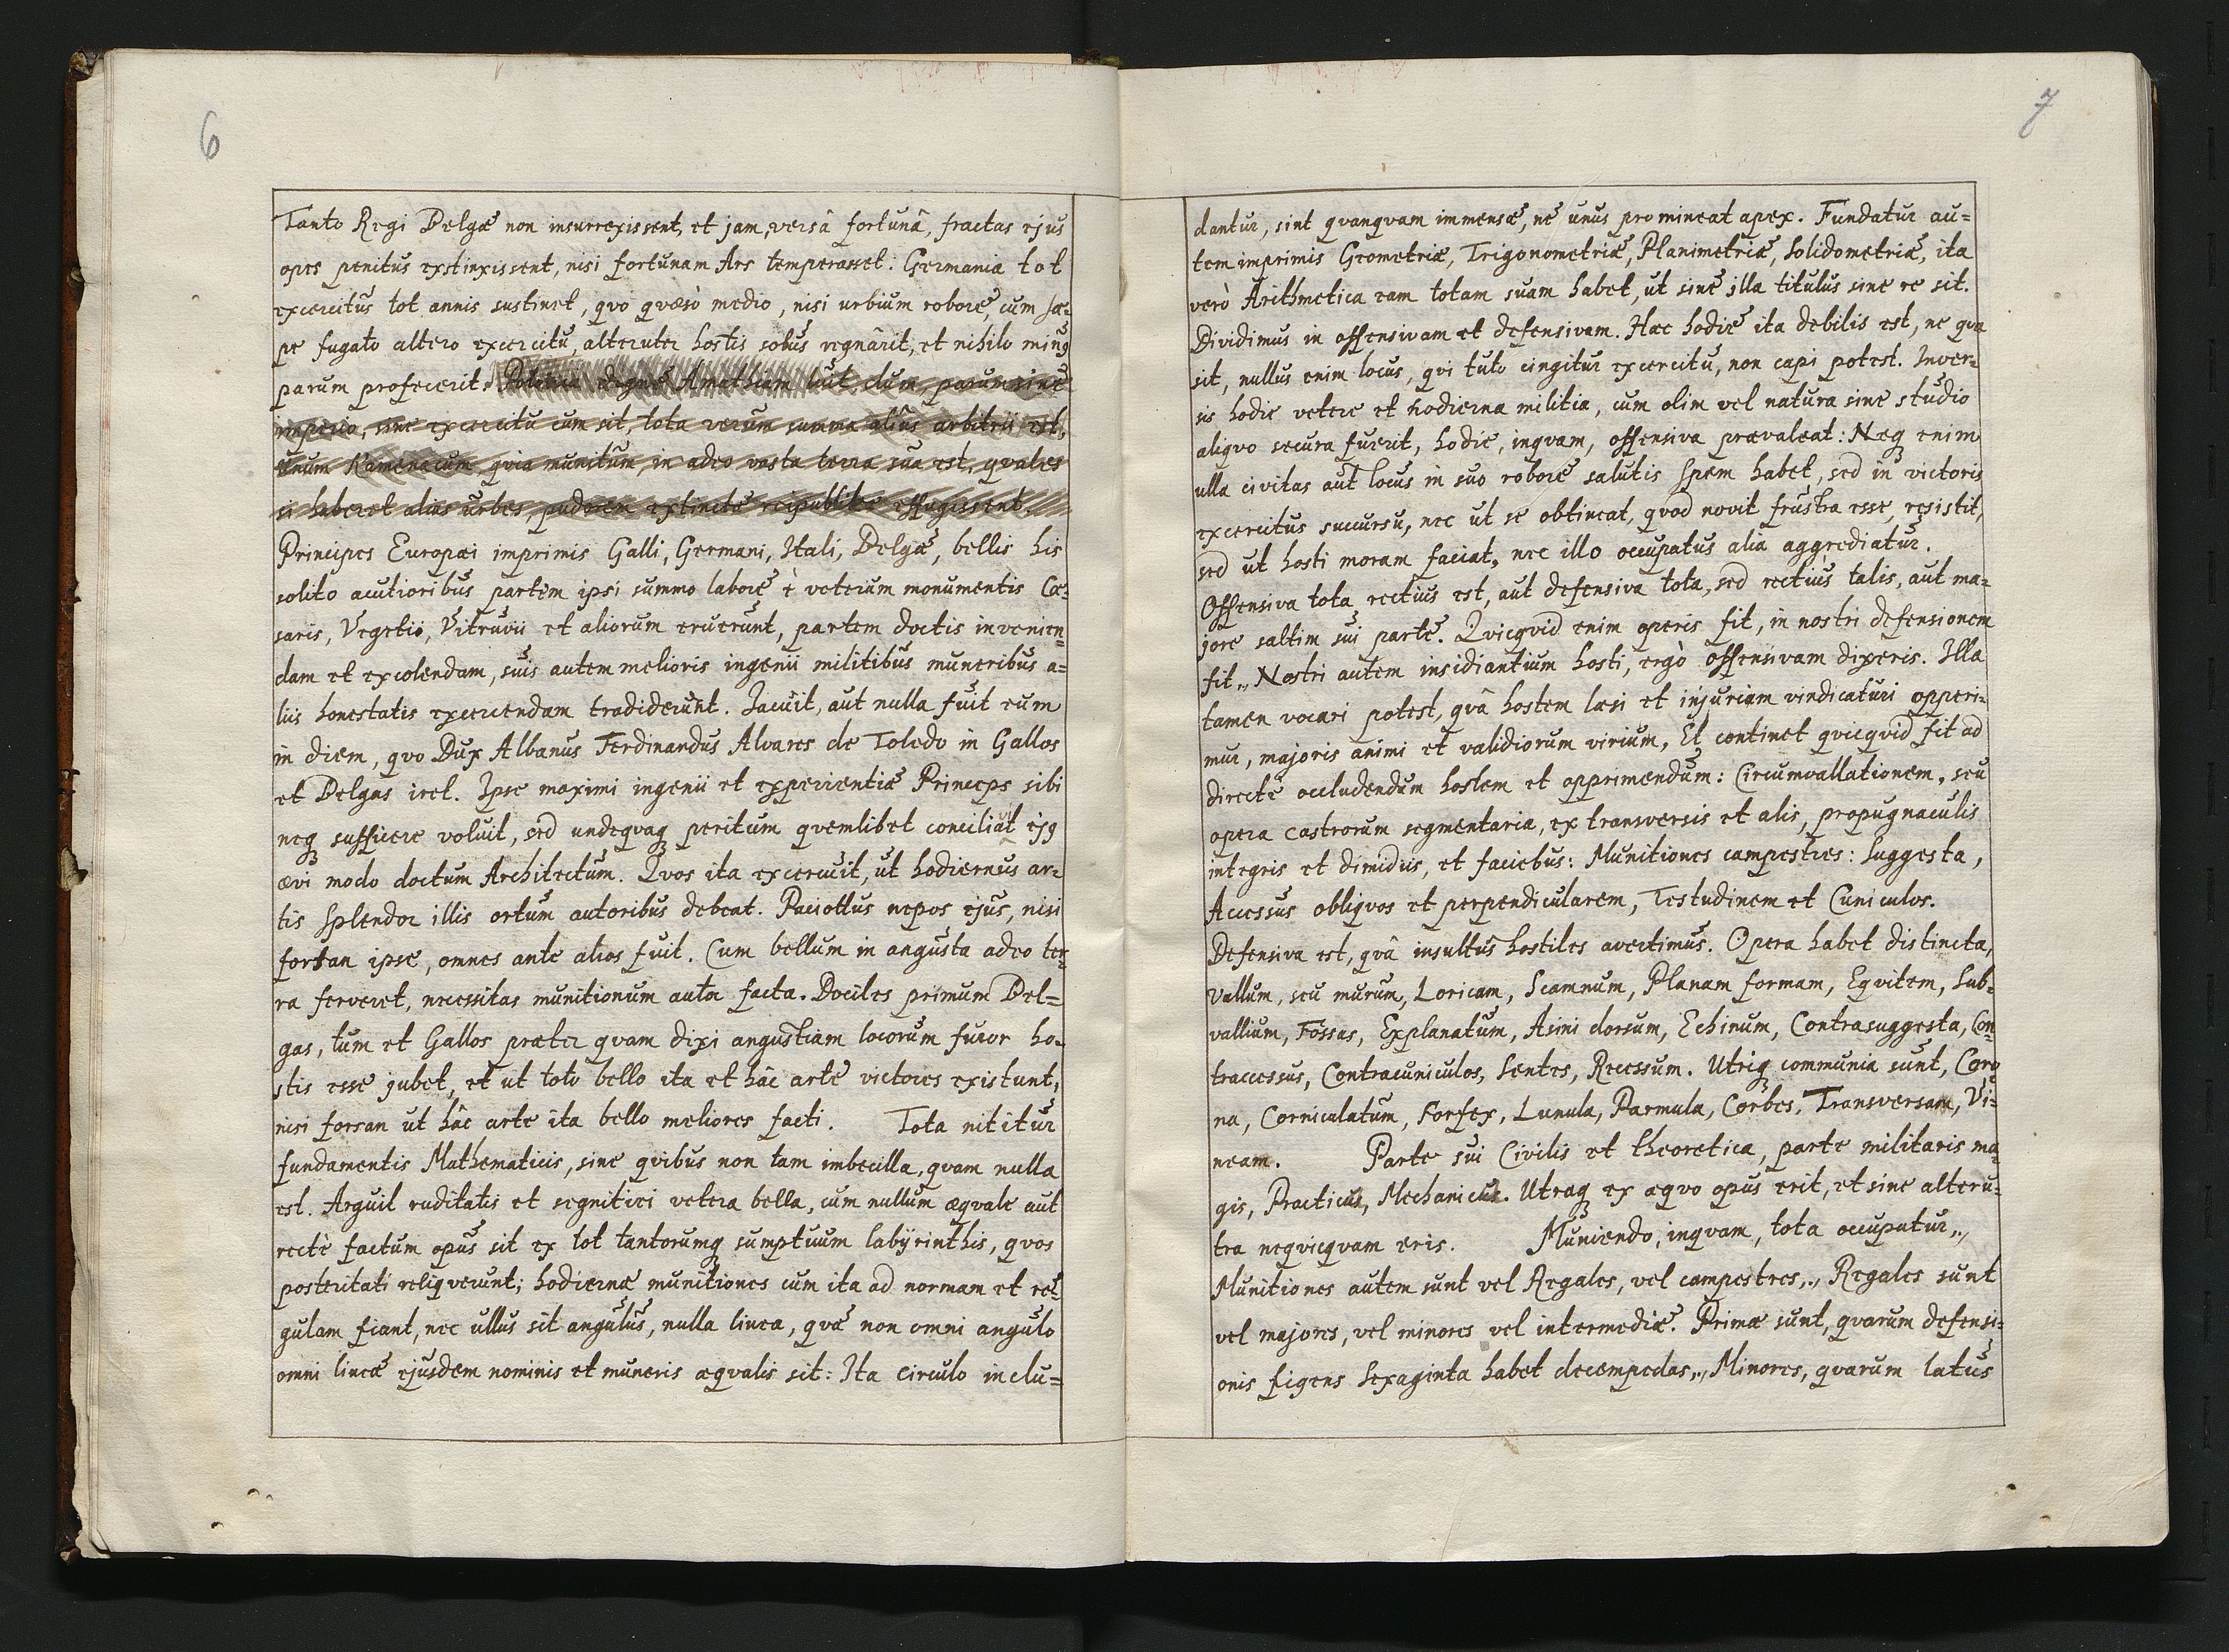 6
Tanto Regi Belgæ non insurrexissent, et jam, versâ fortunâ, fractas ejus
opes penitus exstinxissent, nisi fortunam Ars temperasset: Germania tot
excercitus tot annis sustinet, qvo qvæsò medio, nisi urbium robore, cum sæ=
pe fugato altero excercitu, alteruter hostis solus regnârit, et nihilo minꝰ
parum profecerit. Polonia Amathiam luit, dum, parum sine
imperio, sine excercitu cum sit, tota verum summa alius arbitrii est,
Unum Kamenacum, qvia munitum, in adeo vasta terra sua est, qvales
si haberet alias urbes, pudorem extinctæ reipublicæ effugissent.
Principes Europæi imprimis Galli, Germani, Itali, Belgæ, bellis his
solito acutioribus partem ipsi summo labore è veterum monumentis Cæ=
saris, Vegetii, Vitruvii et aliorum eruerunt, partem doctis invenien=
dam et excolendam, suis autem melioris ingenii militibus muneribus a=
liis honestatis exercendam tradiderunt. Jacuit, aut nulla fuit eum
in diem, qvo Dux Albanus Ferdinandus Alvares de Toledo in Gallos
et Belgas iret. Ipse maximi ingenii et experientiæ Princeps sibi
neqꝫ sufficere voluit, sed undeqvaqꝫ peritum qvemlibet conciliat ejꝰ
ævi modo doctum Architectum. Qvos ita excercuit, ut hodiernus ar=
tis splendor illis ortum autoribus debeat. Paciottus nepos ejus, nisi
forsan ipse, omnes ante alios fuit. Cum bellum in angusta adeo ter=
ra ferveret, necessitas munitionum autor facta. Dociles primum Bel=
gas, tum et Gallos præter qvam dixi angustiam locorum furor ho=
stis esse jubet, et ut toto bello ita et hâc arte victores existunt,
nisi forsan ut hâc arte ita bello meliores facti. Tota nititur
fundamentis Mathematicis, sine qvibus non tam imbecilla, qvam nulla
est. Arguit ruditatis et segnitiei vetera bella, cum nullum æqvale aut
rectè factum opus sit ex tot tantorumqꝫ sumptuum labÿrinthis, qvos
posteritati reliqverunt; hodiernæ munitiones cum ita ad normam et re=
gulam fiant, nec ullus sit angulus, nulla linea, qvæ non omni angulo
omni lineæ ejusdem nominis et muneris æqvalis sit: Ita circulo inclu=
7
dantur, sint qvanqvam immensæ, ne unus promineat apex. Fundatur au=
tem imprimis Geometriæ, Trigonometriæ, Planimetriæ, Solidometriæ, ita
verò Arithmetica eam totam suam habet, ut sine illa titulus sine re sit.
Dividimus in offensivam et defensivam. Hæc hodie ita debilis est, ne qva
sit, nullus enim locus, qvi tuto cingitur excercitu, non capi potest. Inver=
sis hodie vetere et hodierna militia, cum olim vel natura sine studio
aliqvo secura fuerit, hodie, inqvam, offensiva prævaleat: Neqꝫ enim
ulla civitas aut locus in suo robore salutis spem habet, sed in victoris
excercitus succursu, nec ut se obtineat, qvod novit frustra esse, resistit,
sed ut hosti moram faciat, nec illo occupatus alia aggrediatur.
Offensiva tota rectius est, aut defensiva tota, sed rectius talis, aut ma=
jore saltim sui parte. Qvicqvid enim operis fit, in nostri defensionem
fit,, Nostri autem insidiantium hosti, ergò offensivam dixeris. Illa
tamen vocari potest, qvâ hostem læsi et injuriam vindicaturi opperi=
mur, majoris animi et validiorum virium, Et continet qvicqvid fit ad
directè occludendum hostem et opprimendum: Circumvallationem, seu
opera castrorum segmentaria, ex transversis et alis, propugnaculis
integris et dimidiis, et faciebus: Munitiones campestres: Suggesta,
Accessus obliqvos et perpendicularem, Testudinem et Cuniculos.
Defensiva est, qvâ insultus hostiles avertimus. Opera habet distincta,
Vallum, seu murum, Loricam, Scamnum, Planam formam, Eqvitem, Sub=
vallium, Fossas, Explanatum, Asini dorsum, Echinum, Contrasuggesta, Con=
traccessus, Contracuniculos, Sentes, Recessum. Utriqꝫ communia sunt, Coro=
na, Corniculatum, Forfex, Lunula, Parmula, Corbes, Transversam, Vi=
neam. Parte sui Civilis et theoretica, parte militaris ma=
gis, Practicus, Mechanicus. Utraqꝫ ex æqvo opus erit, et sine alteru=
tra neqvicqvam eris. Muniendo, inqvam, tota occupatur,,
Munitiones autem sunt vel Regales, vel campestres,, Regales sunt
vel majores, vel minores vel intermediæ. Primæ sunt, qvarum defensi=
onis figens Sexaginta habet decempedas,, Minores, qvarum latus